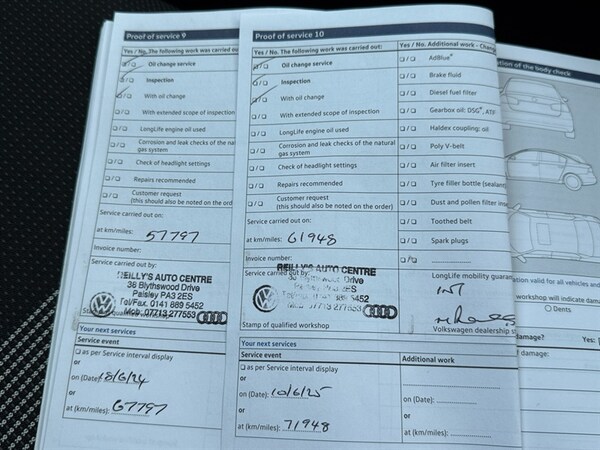 Proof of service 9
Yes / No, The following work was carried out:
Oil change service
Inspection
With oil change
With extended scope of inspection
LongLife engine oil used
Corrosion and leak checks of the natural
gas system
Check of headlight settings
Repairs recommended
Customer request
(this should also be noted on the ord
Service carried out on:
at km/miles: 57797
Invoice number:
Service carried out by:
REILLY'S AUTO CENTRE
36 Blythswood Drive
Paisley PA3 2ES
Tel/Fax. 0141 889 5452
Mob. 07713 277553
Your next services
Service event
as per Service interval display
or
on (Date): 18/6/24
or
at (km/miles): 67797
Proof of service 10
Yes / No, The following work was carried out:
Oil change service
Inspection
With oil change
With extended scope of inspection
LongLife engine oil used
Corrosion and leak checks of the natural
gas system
Check of headlight settings
Repairs recommended
Customer request
(this should also be noted on the order)
Service carried out on:
at km/miles: 61948
Invoice number:
Service carried out by:
REILLY'S AUTO CENTRE
36 Blythswood Drive
Paisley PA3 2ES
Tel/Fax. 0141 889 5452
Mob. 07713 277553
Stamp of qualified workshop
Your next services
Service event
as per Service interval display
or
on (Date): 10/6/25
or
at (km/miles): 71948
Yes / No, Additional work - Chang
AdBlue®
Brake fluid
Diesel fuel filter
Gearbox oil: DSG®, ATF
Haldex coupling: oil
Poly V-belt
Air filter insert
Tyre filler bottle (sealant
Dust and pollen filter inse
Toothed belt
Spark plugs
LongLife mobility guaran
Volkswagen dealership si
Additional work
on (Date):
or
at (km/miles):
ation of the body check
tation valid for all vehicles and
workshop will indicate dama
Dents
amage? Yes:
f damage: